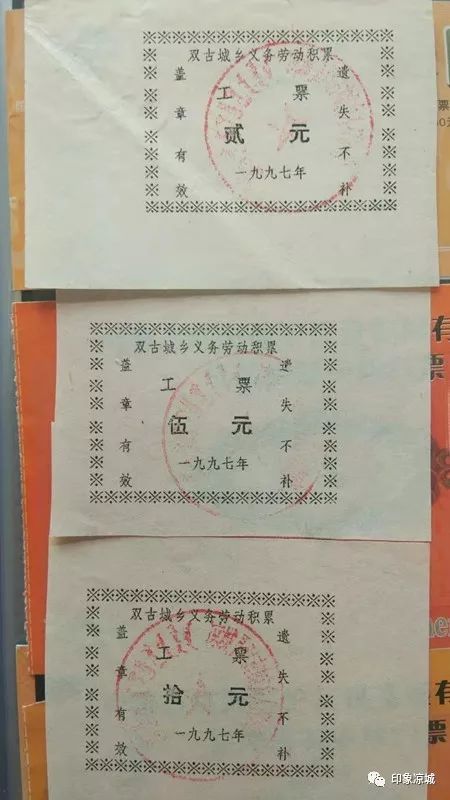 双古城乡义务劳动积累
工 票
贰 元
一九九七年
盖章有效
遗失不补
双古城乡义务劳动积累
工 票
伍 元
一九九七年
盖章有效
遗失不补
双古城乡义务劳动积累
工 票
拾 元
一九九七年
盖章有效
遗失不补
票
有
票
有
票
印象凉城